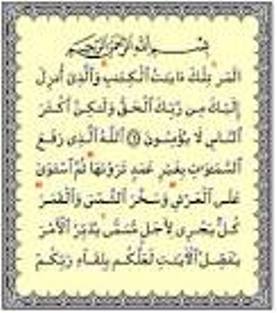 بِسْمِ ٱللَّهِ ٱلرَّحْمَٰنِ ٱلرَّحِيمِ
الٓمٓر تِلْكَ ءَايَٰتُ ٱلْكِتَٰبِ وَٱلَّذِىٓ أُنزِلَ
إِلَيْكَ مِن رَّبِّكَ ٱلْحَقُّ وَلَٰكِنَّ أَكْثَرَ
ٱلنَّاسِ لَا يُؤْمِنُونَ ١ ٱللَّهُ ٱلَّذِى رَفَعَ
ٱلسَّمَٰوَٰتِ بِغَيْرِ عَمَدٍ تَرَوْنَهَا ثُمَّ ٱسْتَوَىٰ
عَلَى ٱلْعَرْشِ وَسَخَّرَ ٱلشَّمْسَ وَٱلْقَمَرَ
كُلٌّ يَجْرِى لِأَجَلٍ مُّسَمًّى يُدَبِّرُ ٱلْأَمْرَ
يُفَصِّلُ ٱلْءَايَٰتِ لَعَلَّكُم بِلِقَآءِ رَبِّكُمْ